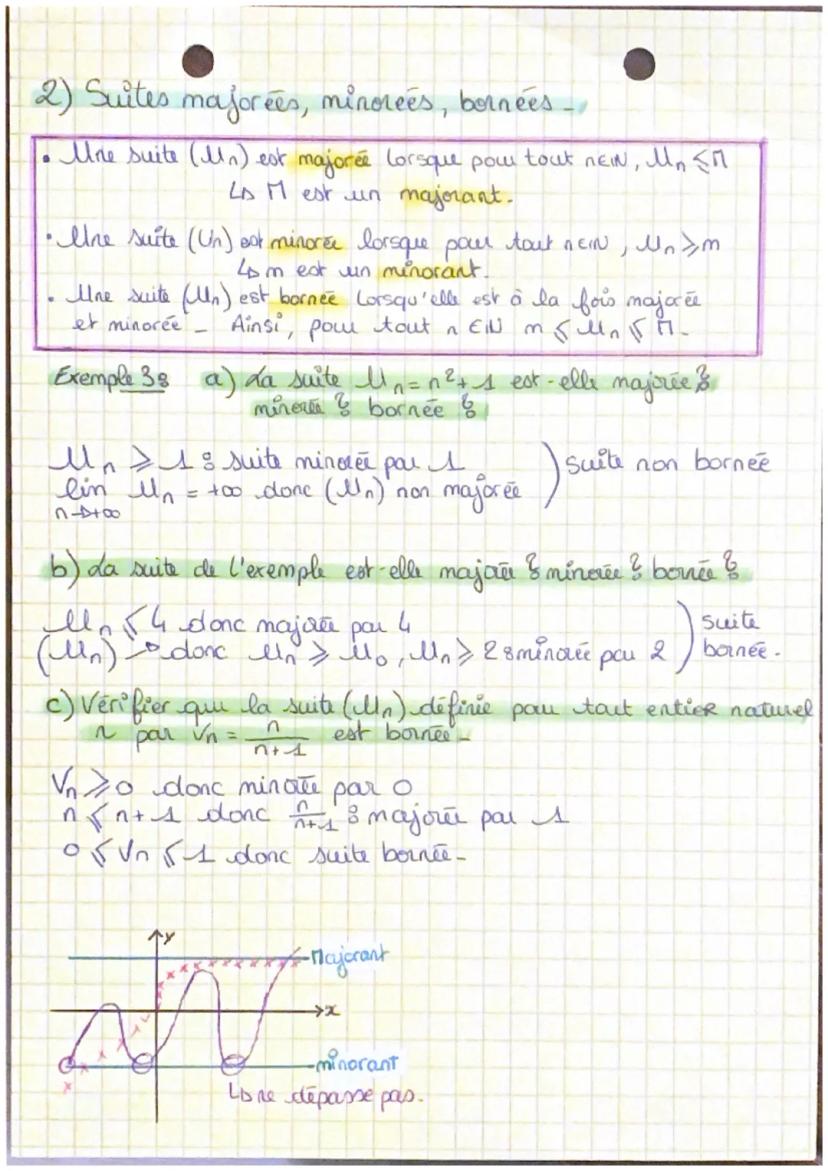 2) Suites majorées, minorées, bornées -
• Une suite (Un) est majorée lorsque pour tout n∈ℕ, Un ≤ M
↳ M est un majorant.
• Une suite (Un) est minorée lorsque pour tout n∈ℕ, Un ≥ m
↳ m est un minorant.
• Une suite (Un) est bornée lorsqu'elle est à la fois majorée
et minorée - Ainsi, pour tout n ∈ ℕ m ≤ Un ≤ M -
Exemple 3: a) La suite Un = n² + 1 est-elle majorée ?
minorée ? bornée ?
Un ≥ 1 : suite minorée par 1
lim Un = +∞ donc (Un) non majorée
n→+∞
) suite non bornée
b) La suite de l'exemple est-elle majorée ? minorée ? bornée ?
Un ≤ 4 donc majorée par 4
(Un) ↗ donc Un ≥ U0, Un ≥ 2 : minorée par 2
) suite
bornée.
c) Vérifier que la suite (Un) définie pour tout entier naturel
n par Vn = n/(n+1) est bornée -
Vn ≥ 0 donc minorée par 0
n ≤ n+1 donc n/(n+1) : majorée par 1
0 ≤ Vn ≤ 1 donc suite bornée -
y
Majorant
x
minorant
↳ ne dépasse pas.